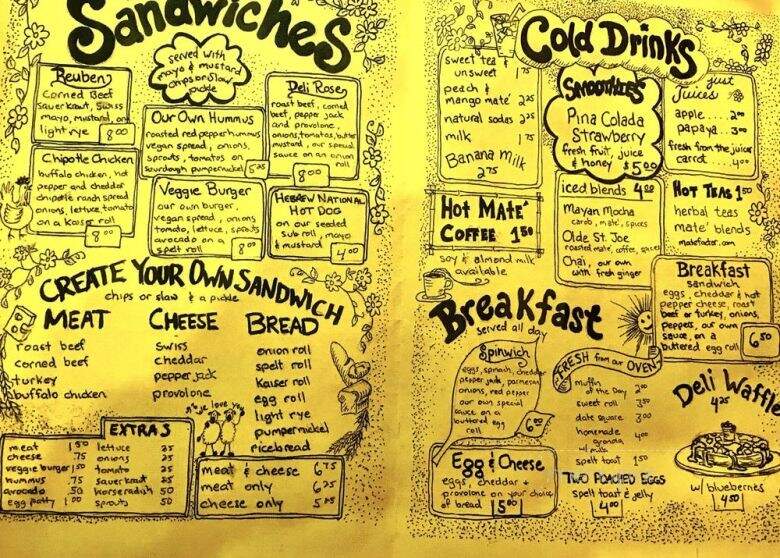 Sandwiches
served with
mayo & mustard
chips or slaw
pickle
Reuben
Corned Beef
Sauerkraut, Swiss
mayo, mustard, on
light rye 8.00
Our Own Hummus
roasted red pepper hummus
vegan spread, onions,
sprouts, tomatos on
sourdough pumpernickel
Deli Rose
roast beef, corned
beef, pepper jack
and provolone,
onions, tomatos, butter
mustard, our special
sauce on an onion
roll
8.00
Chipotle Chicken
buffalo chicken, hot
pepper and cheddar
chipotle ranch spread
onions, lettuce, tomato
on a Kaiser roll
8.00
Veggie Burger
our own burger,
vegan spread, onions
tomato, lettuce, sprouts
avocado on a
spelt roll 8.00
Hebrew National
Hot Dog
on our seeded
sub roll, mayo
& mustard 4.00
CREATE YOUR OWN SANDWICH
chips or slaw & a pickle
MEAT
roast beef
corned beef
turkey
buffalo chicken
CHEESE
swiss
cheddar
pepper jack
provolone
BREAD
onion roll
spelt roll
Kaiser roll
egg roll
light rye
pumpernickel
ricebread
we love you
EXTRAS
meat 1.50
cheese .75
veggie burger 1.50
hummus .75
avocado .50
egg patty 1.00
lettuce 25
onions 25
tomato 25
sauerkraut 25
horseradish 50
sprouts 50
meat & cheese 6.75
meat only 6.25
cheese only
Cold Drinks
sweet tea &
unsweet 1.75
peach &
mango maté 2.25
natural sodas 2.25
milk 1.75
Banana Milk
2.75
SMOOTHIES
Pina Colada
Strawberry
fresh fruit, juice
& honey $5.00
just
Juices
apple.. 2.00
papaya.. 3.00
fresh from the juicer
carrot.. 4.00
Hot Maté
Coffee 1.50
soy & almond milk
available
iced blends 4.00
Mayan Mocha
carob, maté, spices
Olde St. Joe
roasted maté, coffee, spices
Chai, our own
with fresh ginger
Hot Teas 1.50
herbal teas
maté blends
matefactor.com
Breakfast
served all day
Breakfast
sandwich
eggs, cheddar & hot
pepper cheese, roast
beef or turkey, onions,
peppers, our own
sauce, on a
buttered egg roll 6.50
Spinwich
eggs, spinach, cheddar
pepper jack, parmesan
onions, red pepper
our own special
sauce on a
buttered egg
roll 6.00
FRESH from our OVEN
muffin
of the Day 2.00
sweet roll 3.50
date square 3.00
homemade
granola 4.00
w/ milk
spelt toast 1.50
TWO POACHED EGGS
spelt toast & jelly
4.00
Egg & Cheese
eggs, cheddar &
provolone on your choice
of bread 5.00
Deli Waffle
4.25
w/ blueberries
4.50